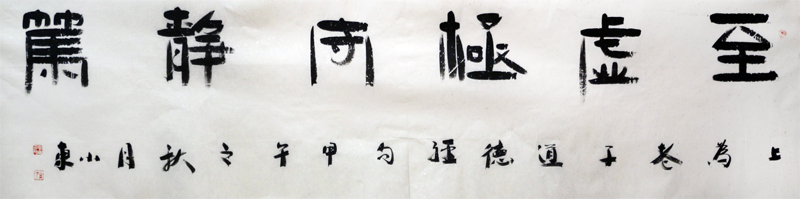 至虚極守静篤
上為老子道德經句甲午之秋月小東